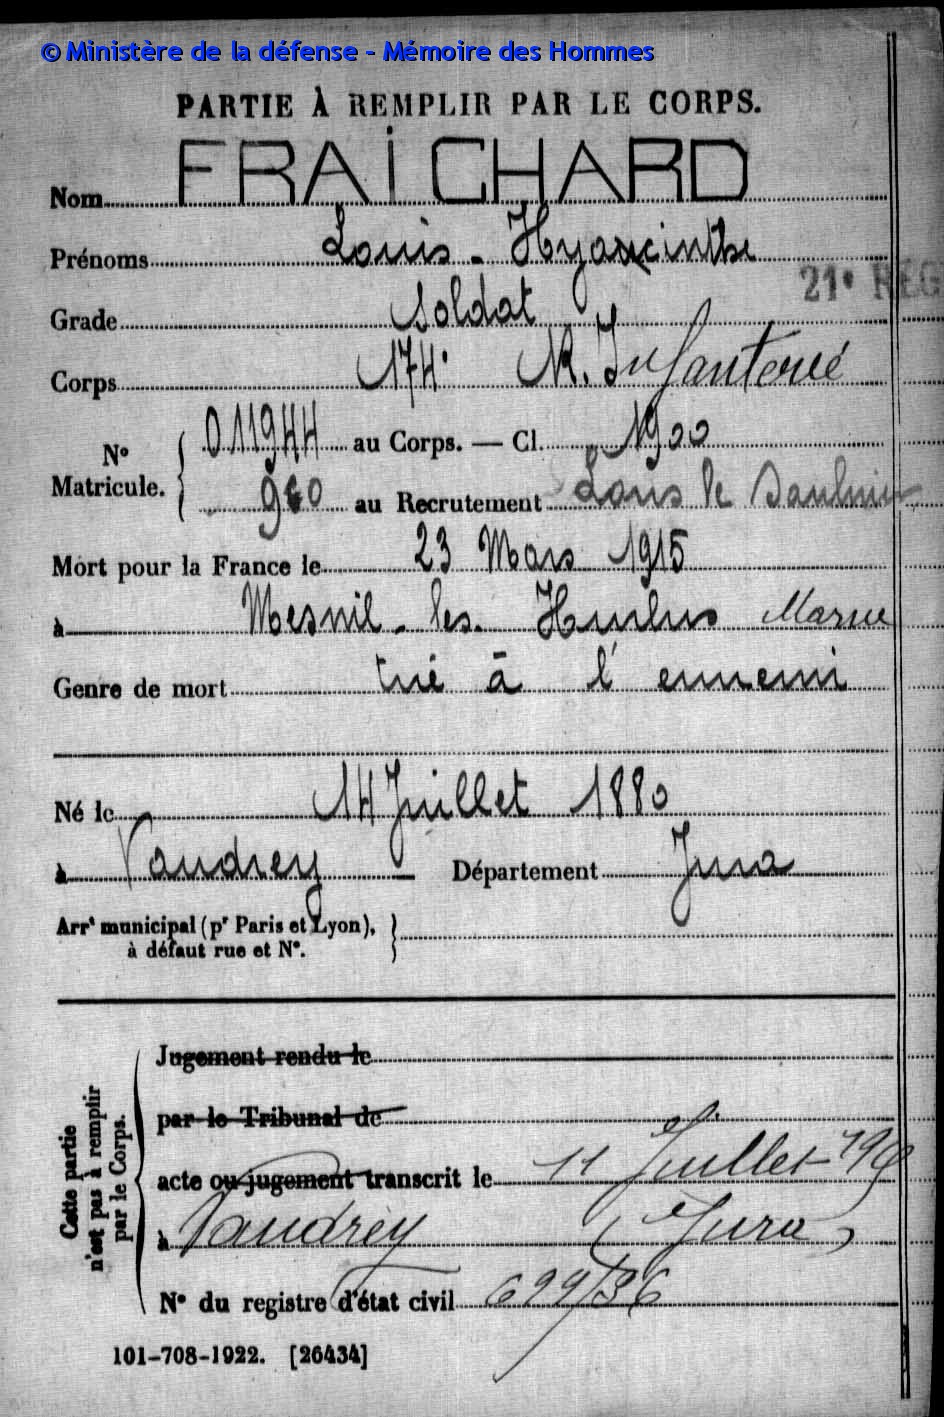 © Ministère de la défense - Mémoire des Hommes
PARTIE À REMPLIR PAR LE CORPS.
Nom FRAICHARD
Prénoms Louis - Hyacinthe
21e RÉG
Grade Soldat
Corps 174e R. Infanterie
N° Matricule. { 011944 au Corps. — Cl. 1900
au Recrutement Lons le Saulnier
Mort pour la France le 23 Mars 1915
à Mesnil - les - Hurlus Marne
Genre de mort tué à l'ennemi
Né le 14 Juillet 1880
à Vaudrey Département Jura
Arrt municipal (pr Paris et Lyon),
à défaut rue et N°.
Cette partie
n'est pas à remplir
par le Corps.
Jugement rendu le
par le Tribunal de
acte ou jugement transcrit le 11 Juillet
à Vaudrey (Jura)
N° du registre d'état civil 699/36
101-708-1922. [26434]